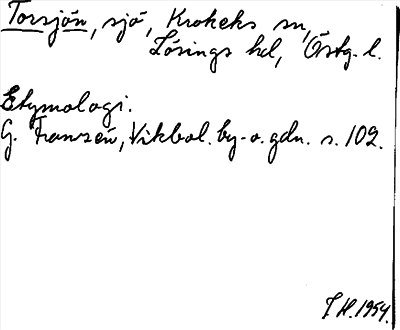 Torsjön, sjö, Krokeks sn,
Lösings hd, Östg. l.
Etymologi.
G. Franzén, Vikbol. by- o. gdn. s. 102.
J. H. 1954.